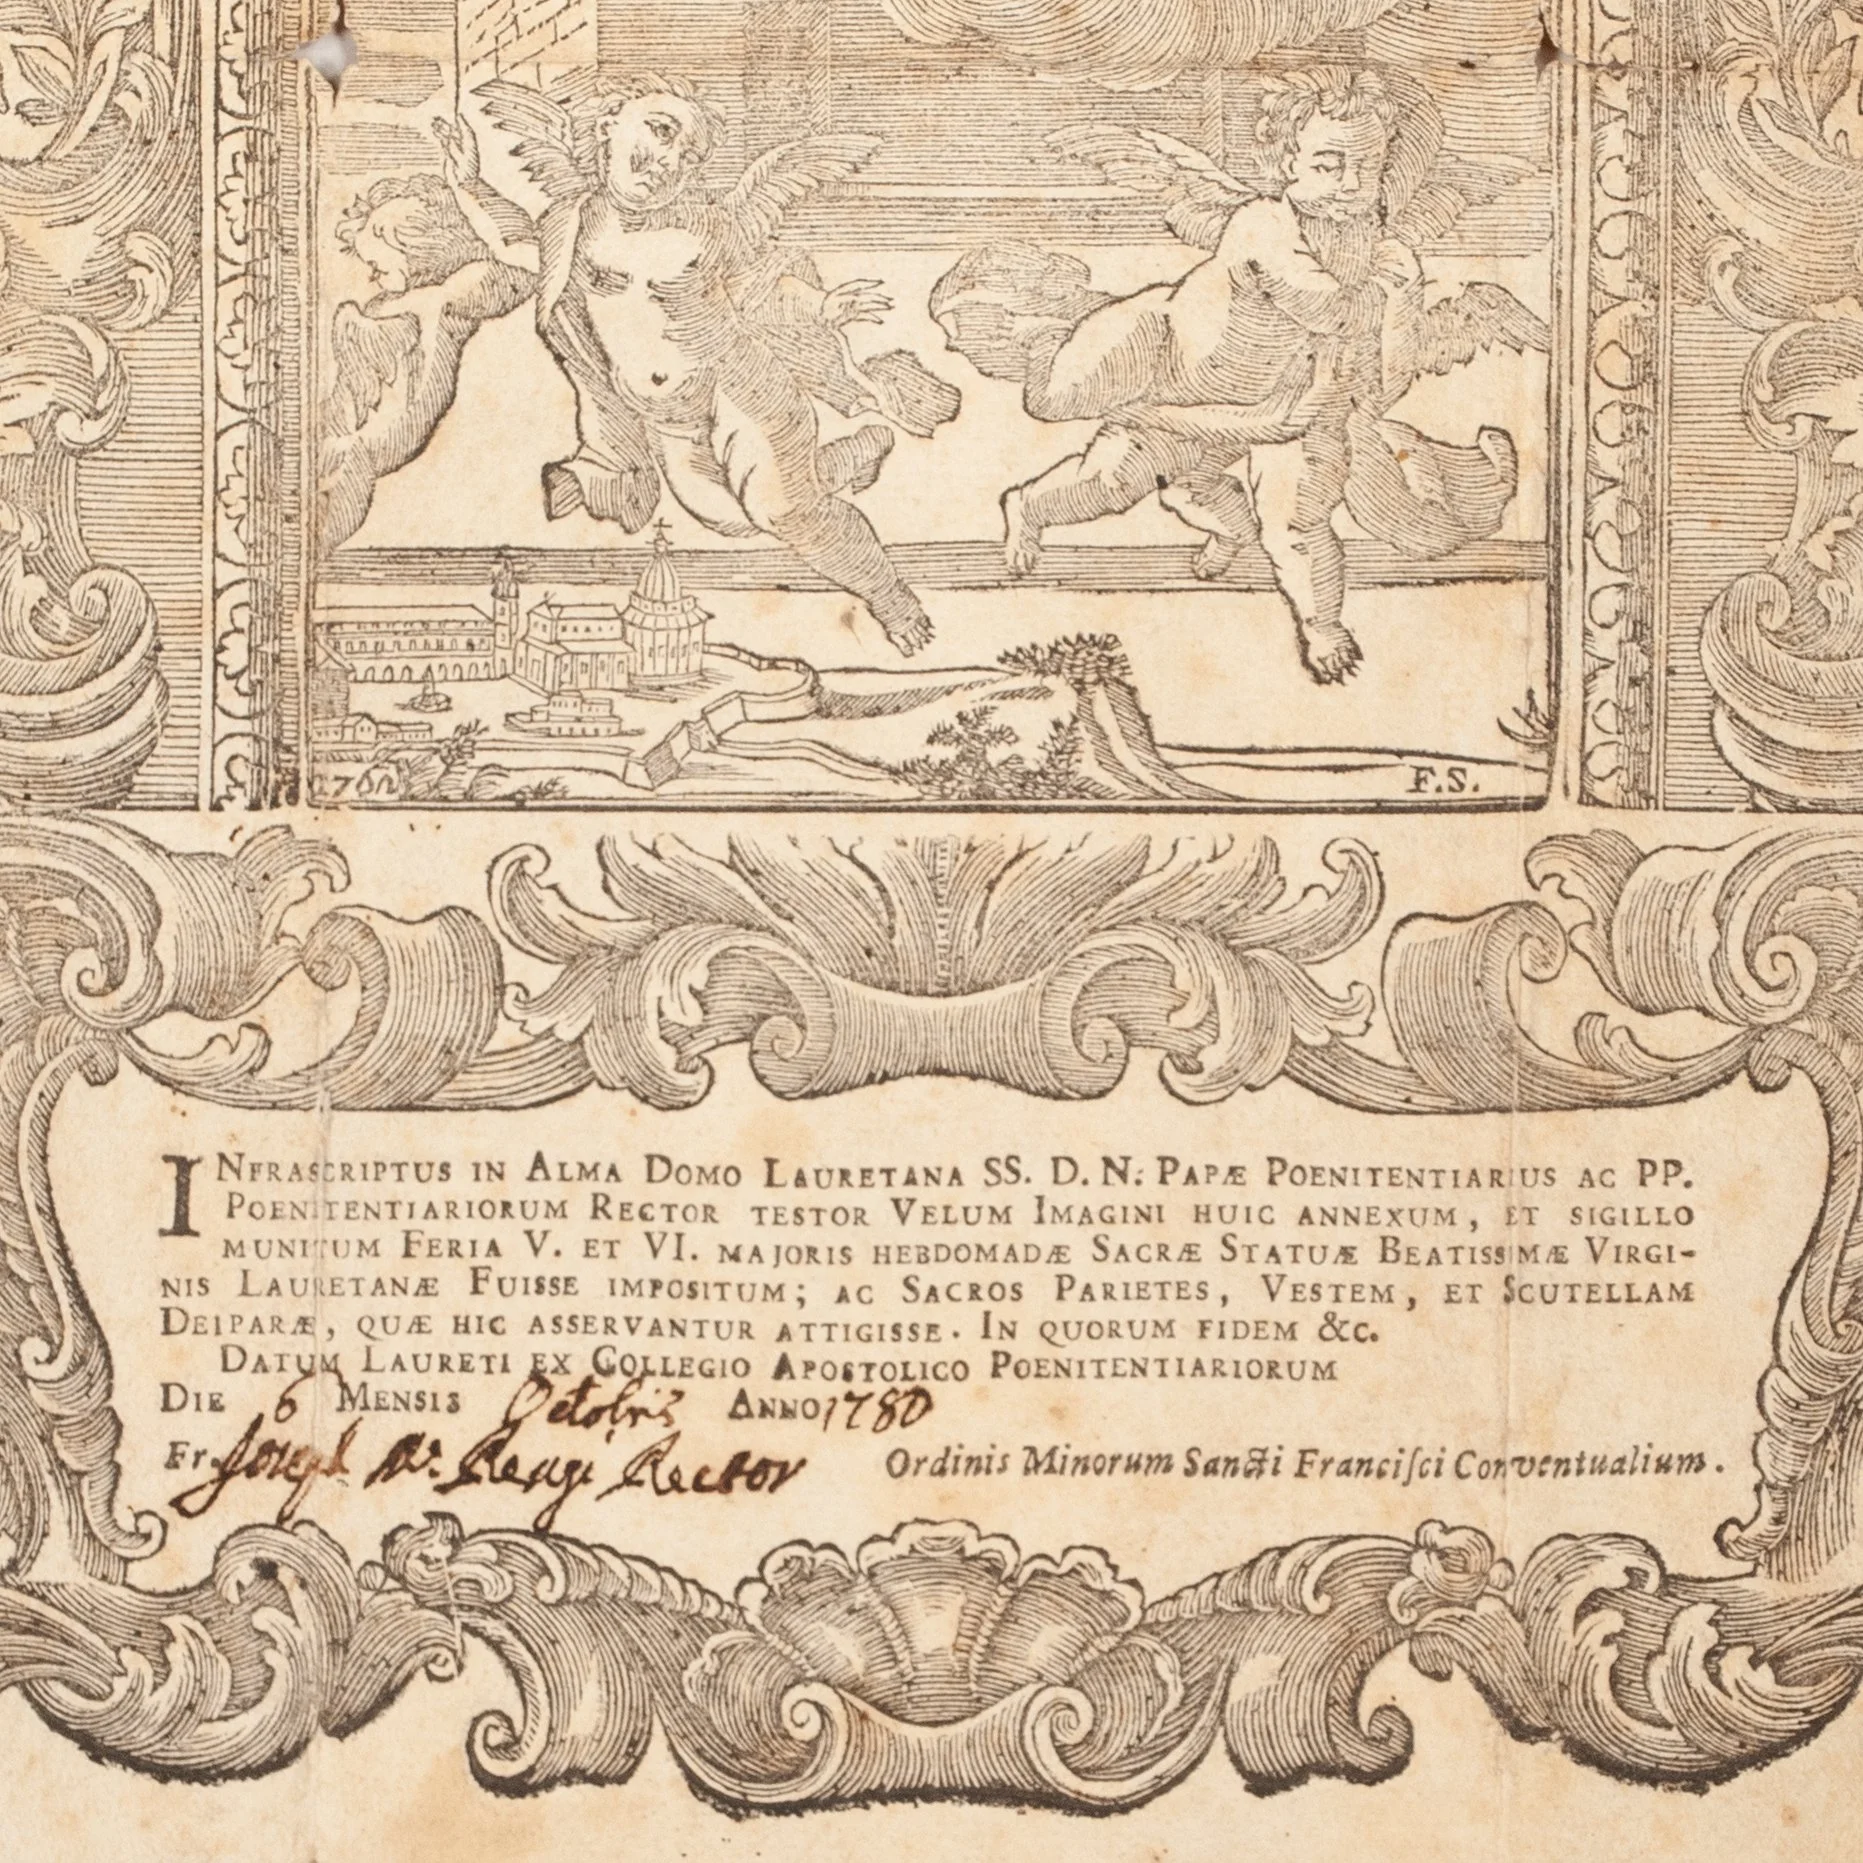 F.S.
INFRASCRIPTUS IN ALMA DOMO LAURETANA SS. D. N. PAPÆ POENITENTIARIUS AC PP.
POENITENTIARIORUM RECTOR TESTOR VELUM IMAGINI HUIC ANNEXUM, ET SIGILLO
MUNITUM FERIA V. ET VI. MAJORIS HEBDOMADÆ SACRÆ STATUÆ BEATISSIMÆ VIRGI-
NIS LAURETANÆ FUISSE IMPOSITUM; AC SACROS PARIETES, VESTEM, ET SCUTELLAM
DEIPARÆ, QUÆ HIC ASSERVANTUR ATTIGISSE. IN QUORUM FIDEM &C.
DATUM LAURETI EX COLLEGIO APOSTOLICO POENITENTIARIORUM
DIE 6 MENSIS Octobris ANNO 1780
Fr. Joseph Rector Ordinis Minorum Sancti Franciſci Conventualium.